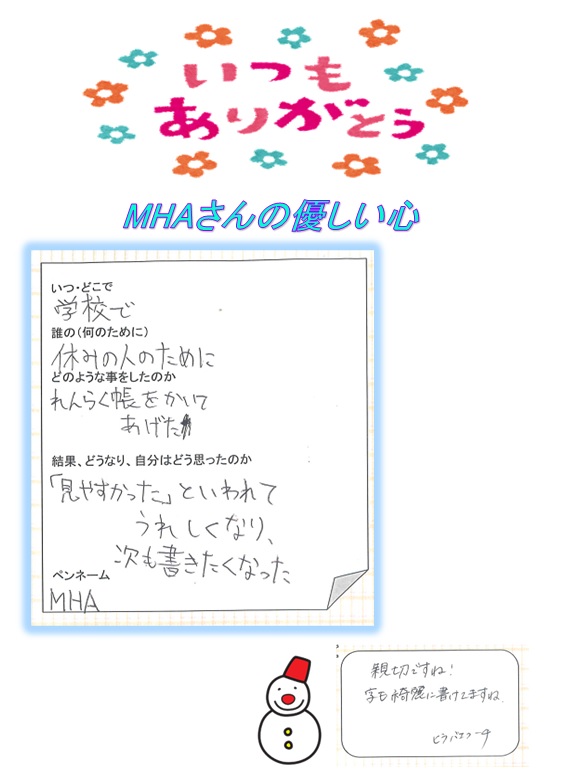 いつも
ありがとう
MHAさんの優しい心
いつ・どこで
学校で
誰の(何のために)
休みの人のために
どのような事をしたのか
れんらく帳をかいて
あげた
結果、どうなり、自分はどう思ったのか
「見やすかった」といわれて
うれしくなり、
次も書きたくなった
ペンネーム
MHA
親切ですね!
字も綺麗に書けてますね。